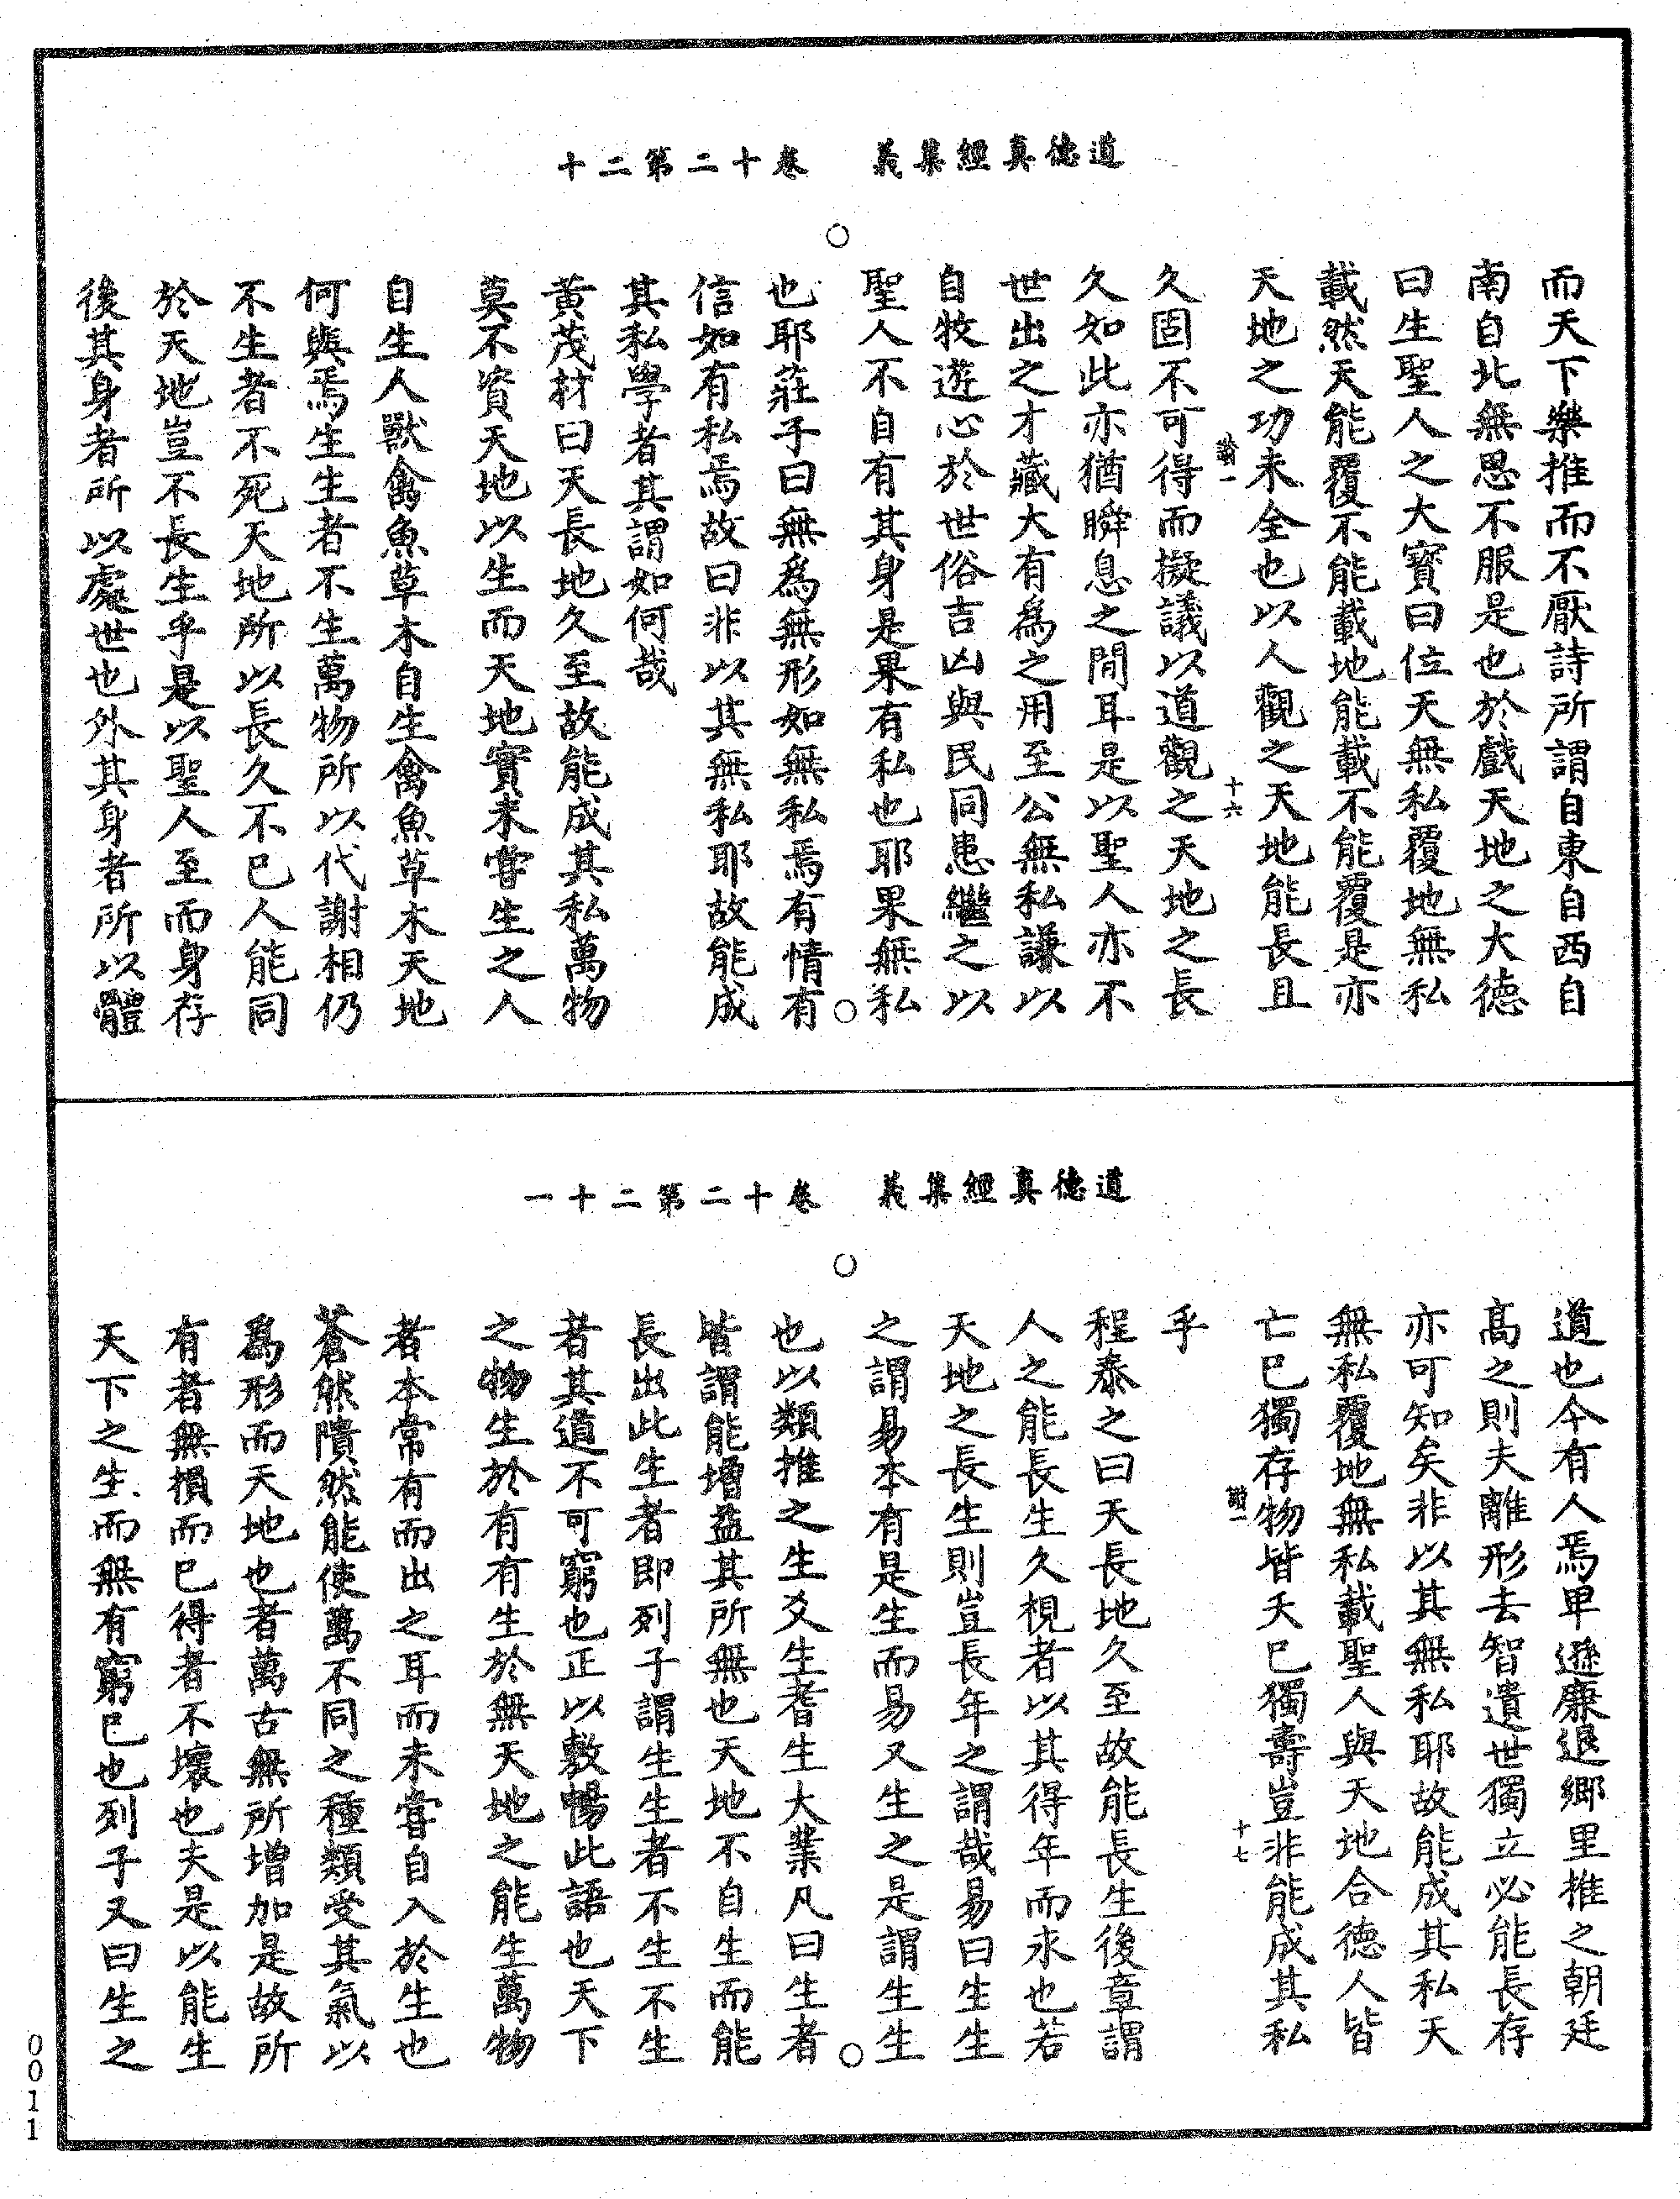 道德真經集義　卷十二第二十
而天下樂推而不厭詩所謂自東自西自
南自北無思不服是也於戲天地之大德
曰生聖人之大寶曰位天無私覆地無私
載然天能覆不能載地能載不能覆是亦
天地之功未全也以人觀之天地能長且
久固不可得而擬議以道觀之天地之長
十六
久如此亦猶瞬息之間耳是以聖人亦不
世出之才藏大有為之用至公無私謙以
自牧遊心於世俗吉凶與民同患繼之以
聖人不自有其身是果有私也耶果無私
也耶莊子曰無為無形如無私焉有情有
信如有私焉故曰非以其無私耶故能成
其私學者其謂如何哉
黄茂材曰天長地久至故能成其私萬物
莫不資天地以生而天地實未甞生之人
自生人獸禽魚草木自生禽魚草木天地
何與焉生生者不生萬物所以代謝相仍
不生者不死天地所以長久不已人能同
於天地豈不長生乎是以聖人至而身存
後其身者所以處世也外其身者所以體
道德真經集義　卷十二第二十一
道也今有人焉卑遜廉退鄉里推之朝廷
高之則夫離形去智遺世獨立必能長存
亦可知矣非以其無私耶故能成其私天
無私覆地無私載聖人與天地合德人皆
亡已獨存物皆夭已獨壽豈非能成其私
十七
乎
程泰之曰天長地久至故能長生後章謂
人之能長生久視者以其得年而永也若
天地之長生則豈長年之謂哉易曰生生
之謂易本有是生而易又生之是謂生生
也以類推之生爻生耆生大業凡曰生者
皆謂能增益其所無也天地不自生而能
長出此生者即列子謂生生者不生不生
者其道不可窮也正以敷暢此語也天下
之物生於有有生於無天地之能生萬物
者本常有而出之耳而未甞自入於生也
蒼然隤然能使萬不同之種類受其氣以
為形而天地也者萬古無所增加是故所
有者無損而已得者不壞也夫是以能生
天下之生而無有窮已也列子又曰生之
0011